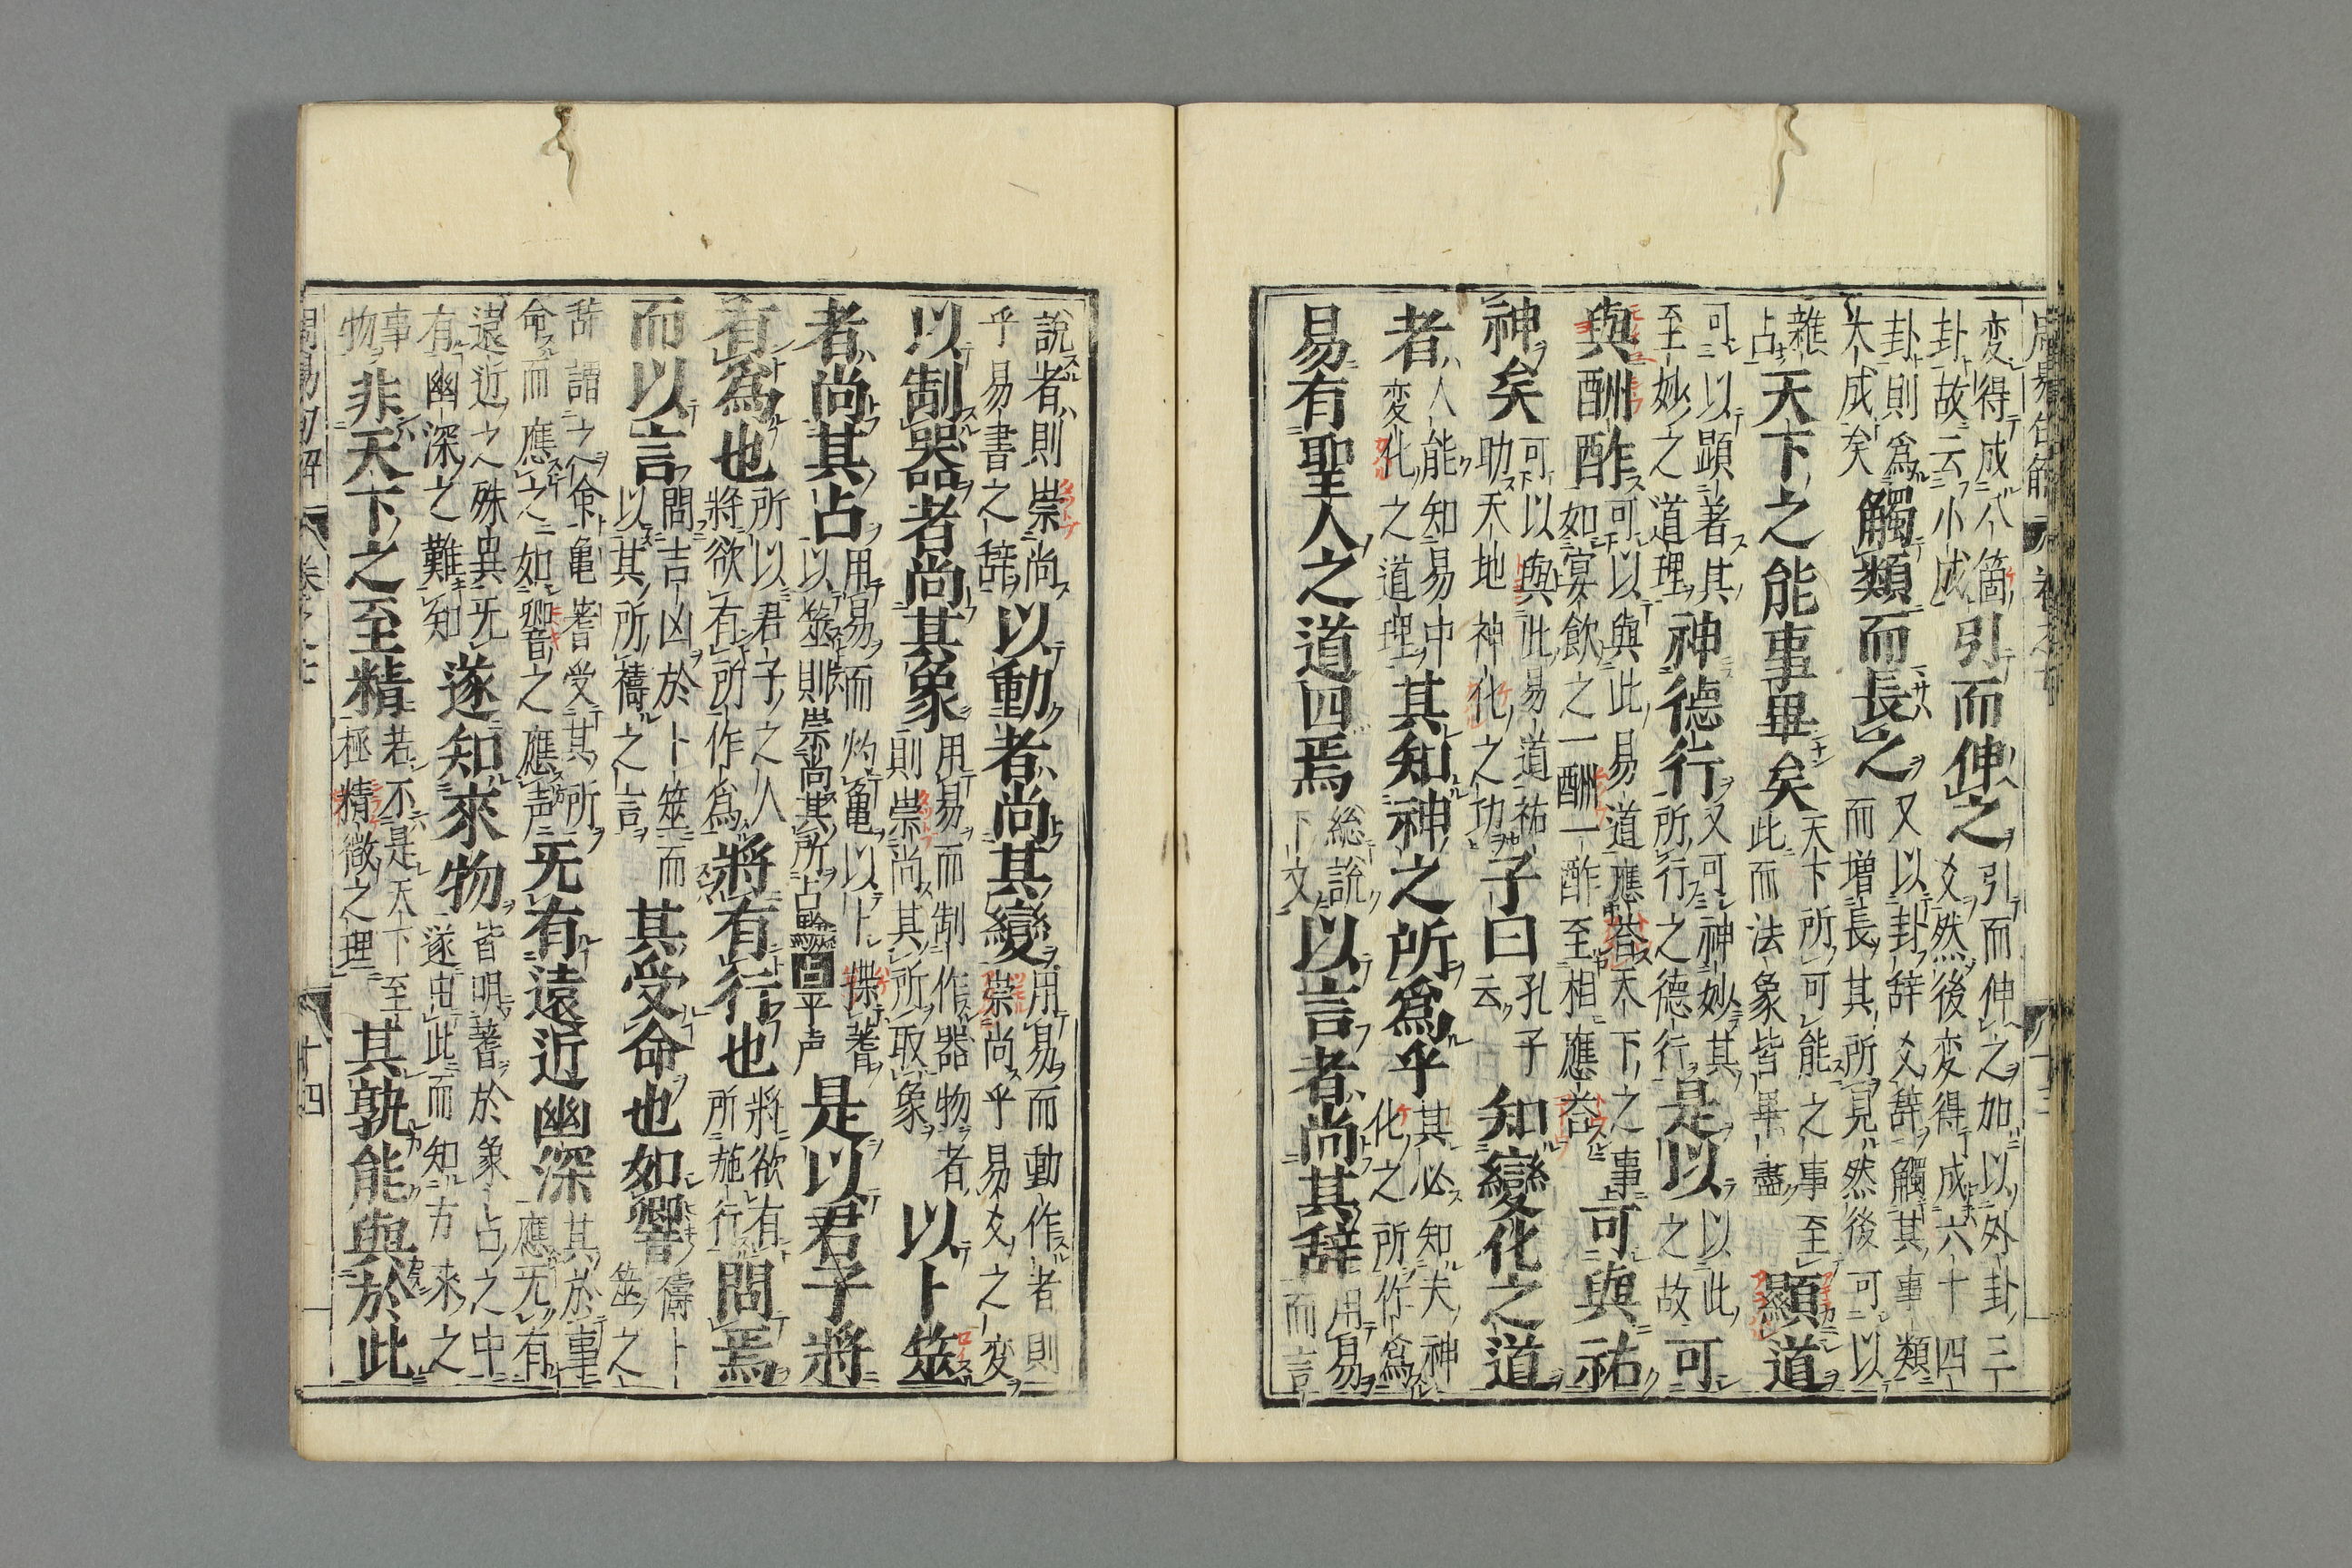 周易句解
変得成八箇卦故云小成引而伸之引而伸之如以外卦三爻然後変得成六十四
卦則爲大成矣觸類而長之又以卦辞爻辞觸其事類而增長其所見然後可以
雜占天下之能事畢矣天下所可能之事至此而法象皆畢盡顯道
可以顕著其至妙之道理神德行又可神妙其所行之德行是以以此之故可
與酬酢可以與此易道應荅天下之事如宴飲之一酬一酢至相應荅可與祐
神矣可以與此易道祐助天地神化之功子曰孔子云知變化之道
者人能知易中変化之道理其知神之所爲乎其必知夫神化之所作爲
易有聖人之道四焉総説下文以言者尚其辭用易而言
說者則崇尚乎易書之辞以動者尚其變用易而動作者則崇尚乎易爻之変
以制器者尚其象用易而制作器物者則崇尚其所取象以卜筮
者尚其占用易而灼亀以卜揲蓍以筮則崇尚其所占占平声是以君子將
有爲也所以君子之人將欲有所作爲將有行也將欲有所施行問焉
而以言問吉凶於卜筮而以其所禱之言其受命也如嚮禱卜筮之
辞謂之命亀蓍受其所命而應之如響之應声无有遠近幽深其於事應无有
遠近之殊異无有幽深之難知遂知來物皆明蓍於象占之中遂由此而知方来之
事物非天下之至精若不是天下至極精微之理其孰能與於此
周易句解 十四